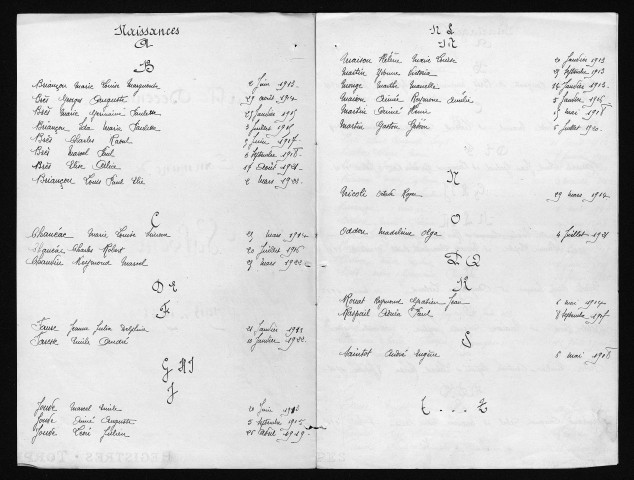 Naissances
A
B
Briançon Marie Louise Marguerite 2 Juin 1913
Brès Georges Auguste 29 août 1914
Brès Marie Germaine 23 Janvier 1915
Briançon Marie 3 Juillet 1915
Brès Charles Raoul Juin 1917
Brès Marcel Paul 6 Septembre 1918
Brès Elise 17 Août 1921
Briançon Louis Paul Elie 2 Mars 1922
C
Chancéac Marie Louise 29 Mars 1914
Charles Robert 20 Juillet 1916
Raymond Marcel 29 Mars 1922
D E
F
Faure Jeanne Julia Delphine 21 Janvier 1913
Emile André 11 Janvier 1922
G H I
J
Jouve Marcel Emile 20 Juin 1913
Jouve Aimé Auguste 5 Septembre 1915
Jouve René Julien 25 Avril 1919
K L
M
Maurson Hélène Marie Louise 20 Janvier 1913
Martin Yvonne Victoria 29 Septembre 1913
Monge Marthe 24 Janvier 1913
Aimée Raymonde 5 Janvier 1915
Martin Henri mai 1918
Martin Gaston 5 Juillet 1920
N
Nicoli Roger 29 Mars 1914
O
Oddon Madeleine Olga 4 Juillet 1921
P Q
R
Raymond Jean 6 mai 1914
Raspail Paul 8 Septembre 1917
S
Saintot André Eugène 5 Mai 1918
T . . . Z